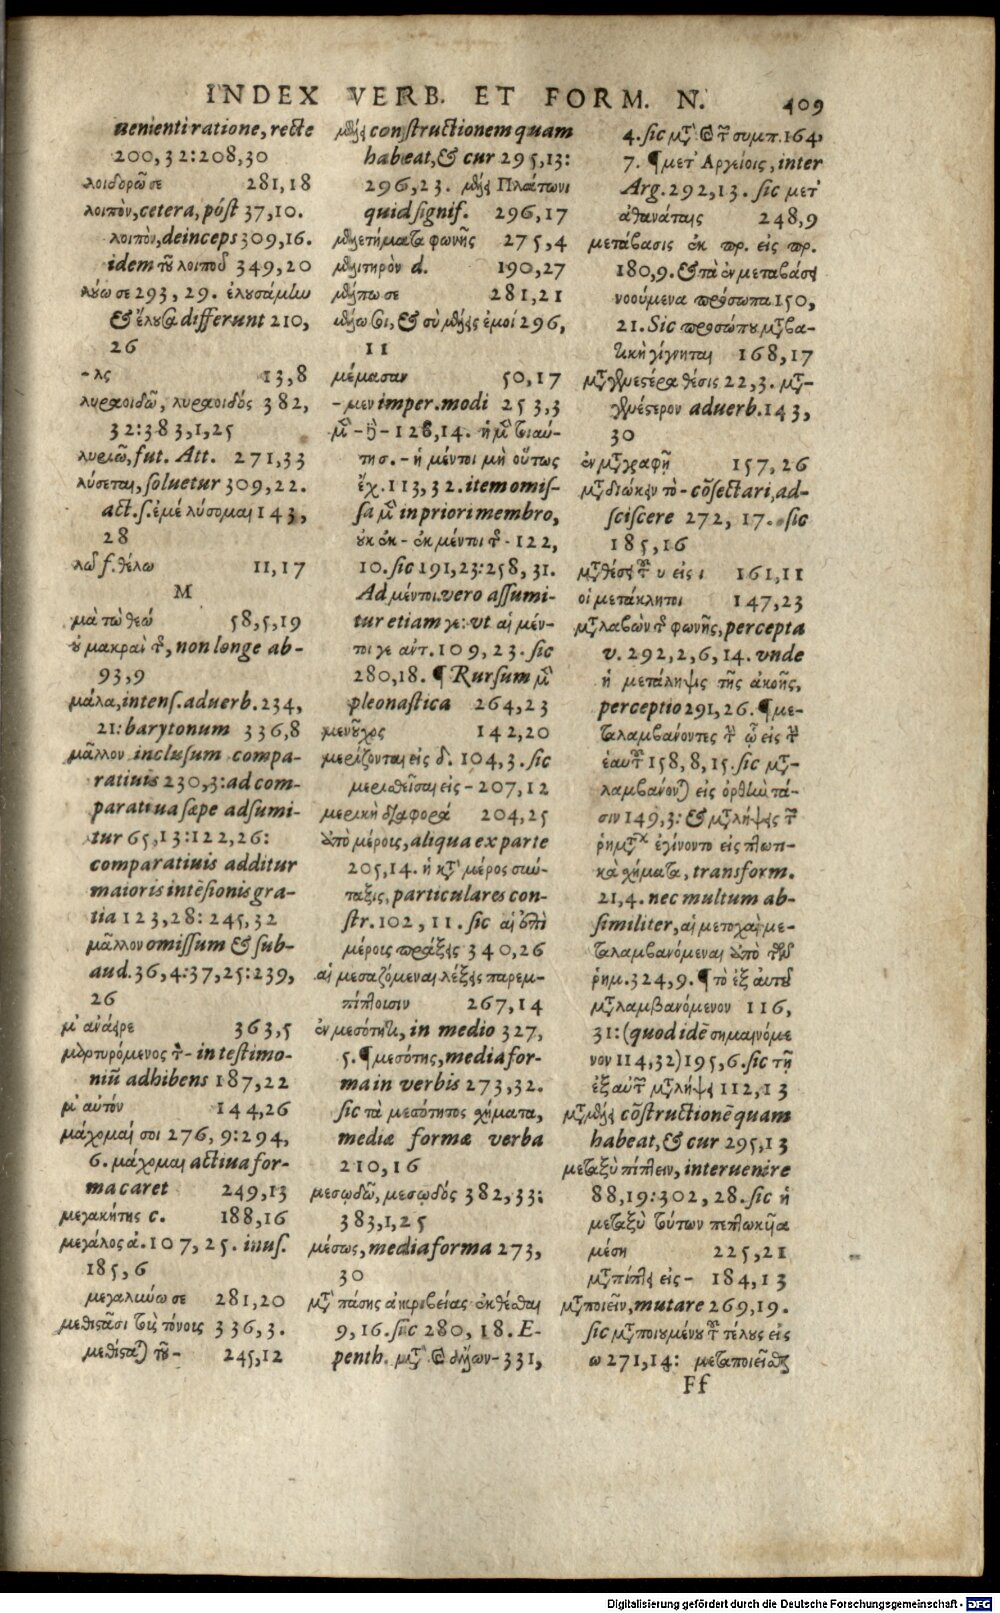 INDEX VERB. ET FORM. N. 409
uenienti ratione, recte
200,32:208,30
λοιδορῶ σε 281,18
λοιπὸν, cetera, póst 37,10.
λοιπὸν, deinceps 309,16.
idem τοῦ λοιποῦ 349,20
λύω σε 293, 29. ἐλυσάμην
& ἔλυσα differunt 210,
26
-λς 13,8
λυραοιδῶ, λυραοιδός 382,
32:383,1,25
λυριῶ, fut. Att. 271,33
λύσεται, soluetur 309,22.
act. s. ἐμέ λύσομαι 143,
28
λῶ f. θέλω 11,17
M
μὰ τὼ θεώ 58,5,19
οὐ μακρὰν τοῦ, non longe ab-
93,9
μάλα, intens. aduerb. 234,
21: barytonum 336,8
μᾶλλον inclusum compa-
ratiuis 230,3: ad com-
paratiua sæpe adsumi-
tur 65,13:122,26:
comparatiuis additur
maioris intẽsionis gra-
tia 123,28: 245,32
μᾶλλον omissum & sub-
aud. 36,4:37,25:239,
26
μ' ἀνάειρε 363,5
μαρτυρόμενος τὸν- in testimo-
niũ adhibens 187,22
μ' αὐτόν 144,26
μάχομαί σοι 276, 9:294,
6. μάχομαι actiua for-
ma caret 249,13
μεγακήτης c. 188,16
μεγάλος ἀ. 107, 25. inus.
185,6
μεγαλύνω σε 281,20
μεθιστᾶσι τοὺς τόνους 336,3.
μεθίσταται τοῦ- 245,12
μεθ' constructionem quam
habeat, & cur 295,13:
296,23. Πλάτωνι
quid signif. 296,17
φωνῆς 275,4
d. 190,27
σε 281,21
& σὺ ἐμοί 296,
11
μέμασαν 50,17
-μεν imper. modi 253,3
-128,14.
τησ. - ἡ μέντοι μὴ οὕτως
ἔχ. 113,32. item omis-
sa in priori membro,
οὐκ ἐκ- ἐκ μέντοι τοῦ-122,
10. sic 191,23:258, 31.
Ad μέντοι vero assumi-
tur etiam γε: vt αἱ μέν-
τοι γε ἀντ. 109,23. sic
280,18. ¶ Rursum
pleonastica 264,23
μενοῦχος 142,20
μερίζονται εἰς δ. 104,3. sic
μερισθεῖσαι εἰς-207,12
μερικὴ διαφορά 204,25
ἀπὸ μέροις, aliqua ex parte
205,14. ἡ κατὰ μέρος σύν-
ταξις, particulares con-
str. 102,11. sic αἱ ἀπὸ
μέροις πράξεις 340,26
αἱ μεσαζόμεναι λέξεις παρεμ-
πίπτουσιν 267,14
ἐν μεσότητι, in medio 327,
5. ¶ μεσότης, media for-
ma in verbis 273,32.
sic τὰ μεσότητος σχήματα,
mediæ formæ verba
210,16
μεσῳδῶ, μεσῳδός 382,33:
383,1,25
μέσως, media forma 273,
30
μετὰ πάσης ἀκριβείας ἐκθέσθαι
9,16. sic 280, 18. E-
penth. 331,
4. sic μετὰ συμπ. 164,
7. ¶ μετ' Ἀργείοις, inter
Arg. 292,13. sic μετ'
ἀθανάταις 248,9
μετάβασις ἐκ πρ. εἰς πρ.
180,9. & τὰ ἐν μεταβάσει
νοούμενα πρόσωπα 150,
21. Sic προσώπου μεταβα-
τικὴ γίγνεται 168,17
μεταγενεστέρα θέσις 22,3. μετα-
γενέστερον aduerb. 143,
30
ἐν μεταγραφῇ 157,26
μεταδιώκειν τὸ- cõsectari, ad-
sciscere 272, 17. sic
185,16
μεταθέσει τοῦ υ εἰς ι 161,11
οἱ μετάκλητοι 147,23
μεταλαβὼν τὸν φωνῆς, percepta
v. 292,2,6,14. vnde
ἡ μετάληψις τῆς ἀκοῆς,
perceptio 291,26. ¶ με-
ταλαμβανόντες ᾧ εἰς
158,8,15. sic μετα-
λαμβάνονται εἰς ὀρθὴν τά-
σιν 149,3: & μεταλήψεις τοῦ
ἐγίνοντο εἰς πτωτι-
κὰ σχήματα, transform.
21,4. nec multum ab-
similiter, αἱ μετοχαὶ με-
ταλαμβανόμεναι ἀπὸ τῶν
ῥημ. 324,9. ¶ τὸ ἐξ αὐτοῦ
μεταλαμβανόμενον 116,
31: (quod idẽ σημαινόμε
νον 114,32) 195,6. sic τῇ
ἐξ αὐτοῦ μεταλήψει 112,13
cõstructionẽ quam
habeat, & cur 295,13
μεταξὺ πίπτειν, interuenire
88,19:302,28. sic ἡ
μεταξὺ τούτων πεπτωκυῖα
μέση 225,21
μεταπίπτει εἰς- 184,13
μεταποιεῖν, mutare 269,19.
sic μεταποιουμένου τοῦ τέλους εἰς
ω 271,14: μεταποιεῖσθαι
Ff
Digitalisierung gefördert durch die Deutsche Forschungsgemeinschaft - DFG